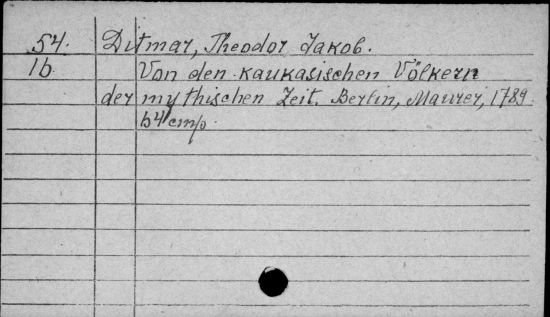 54. Ditmar, Theodor Jakob.
1b Von den kaukasischen Völkern
der mythischen Zeit. Berlin, Maurer, 1789.
64 cmp.